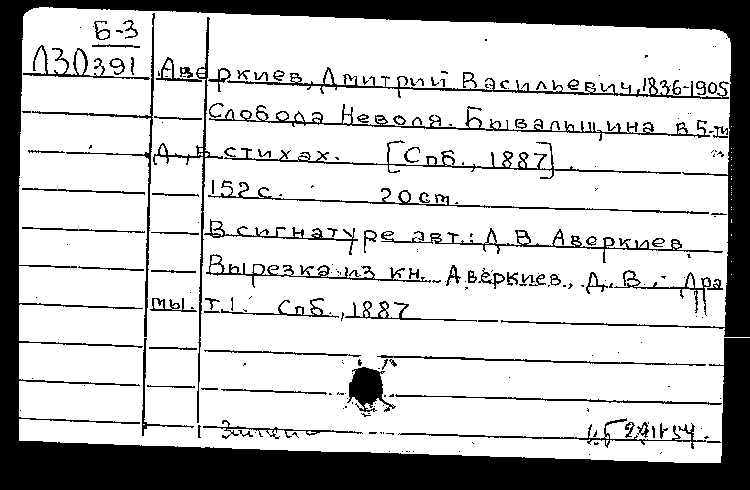 Б-3
Л30391
Аверкиев, Дмитрий Васильевич, 1836-1905
Слобода Неволя. Бывальщина в 5-ти
д., в стихах. [Спб., 1887].
152 с. 20 см.
В сигнатуре авт.: Д. В. Аверкиев.
Вырезка из кн. Аверкиев, Д. В. Дра
мы. т. 1. Спб., 1887